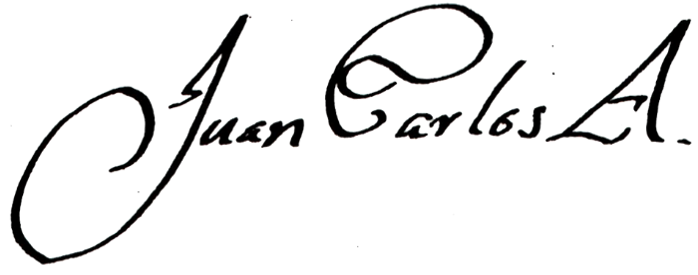 Juan Carlos A.